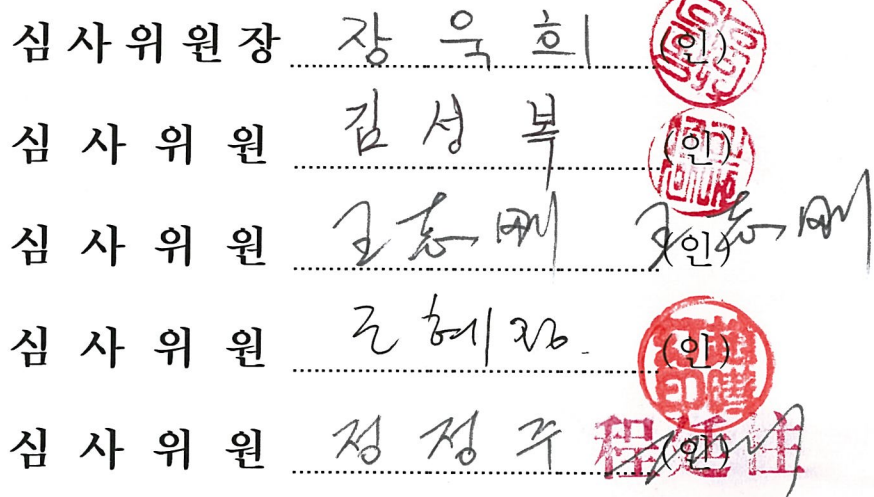 심사위원장 장 욱 희 (인)
심 사 위 원 김 성 복 (인)
심 사 위 원 王志 (인) 王志
심 사 위 원 혜 (인)
심 사 위 원 정 정 주 (인) 程廷柱